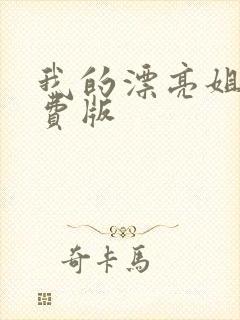 我的漂亮姐
費版
奇卡馬